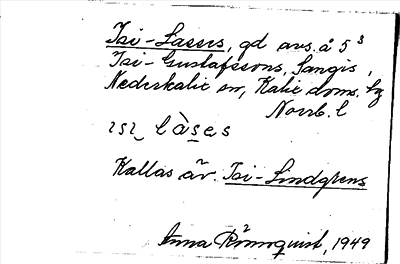 Isi-Lasses, gd avs. å 5³
Isi-Gustafssons, Sangis,
Nederkalix sn, Kalix doms. hg
Norrb. l
ɪsɪ làses
Kallas äv. Isi-Lindgrens
Anna Rönnquist, 1949